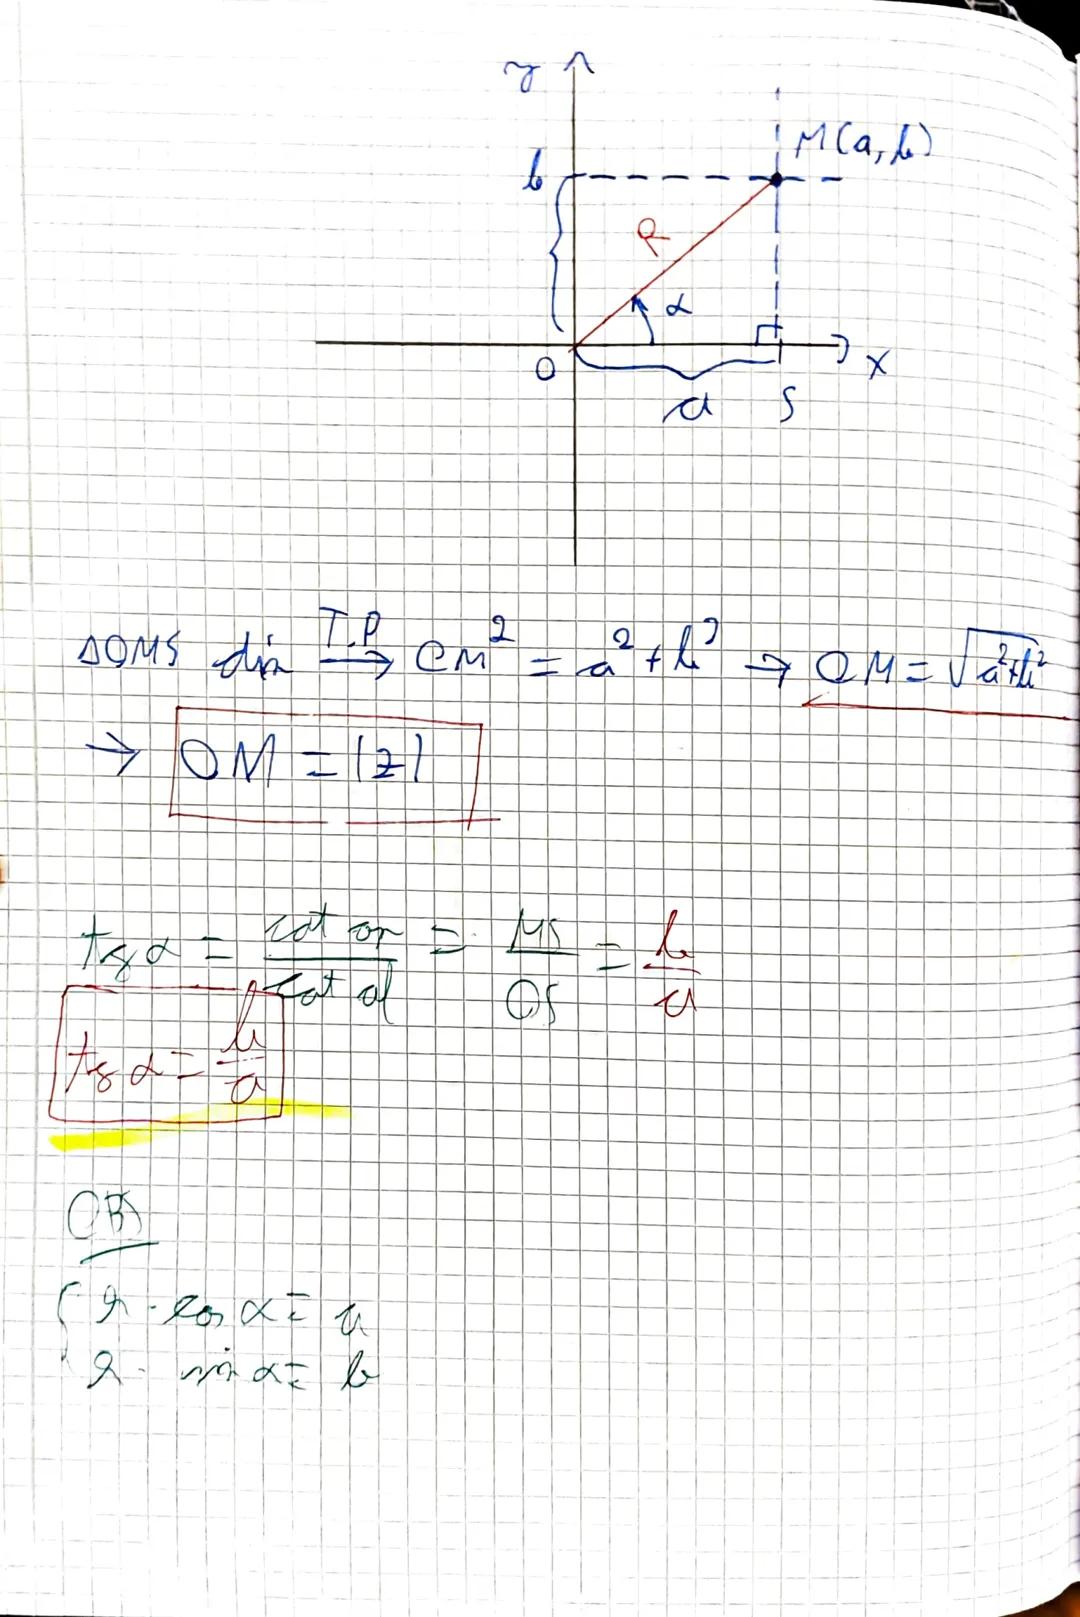 y
M(a,b)
b
R
α
O
x
a
S
ΔOMS din T.P → OM² = a² + b² → OM = √a²+b²
→ OM = |z|
tg α = cat op / cat al = MS / OS = b / a
tg α = b / a
OBS
{ r · cos α = a
r · sin α = b